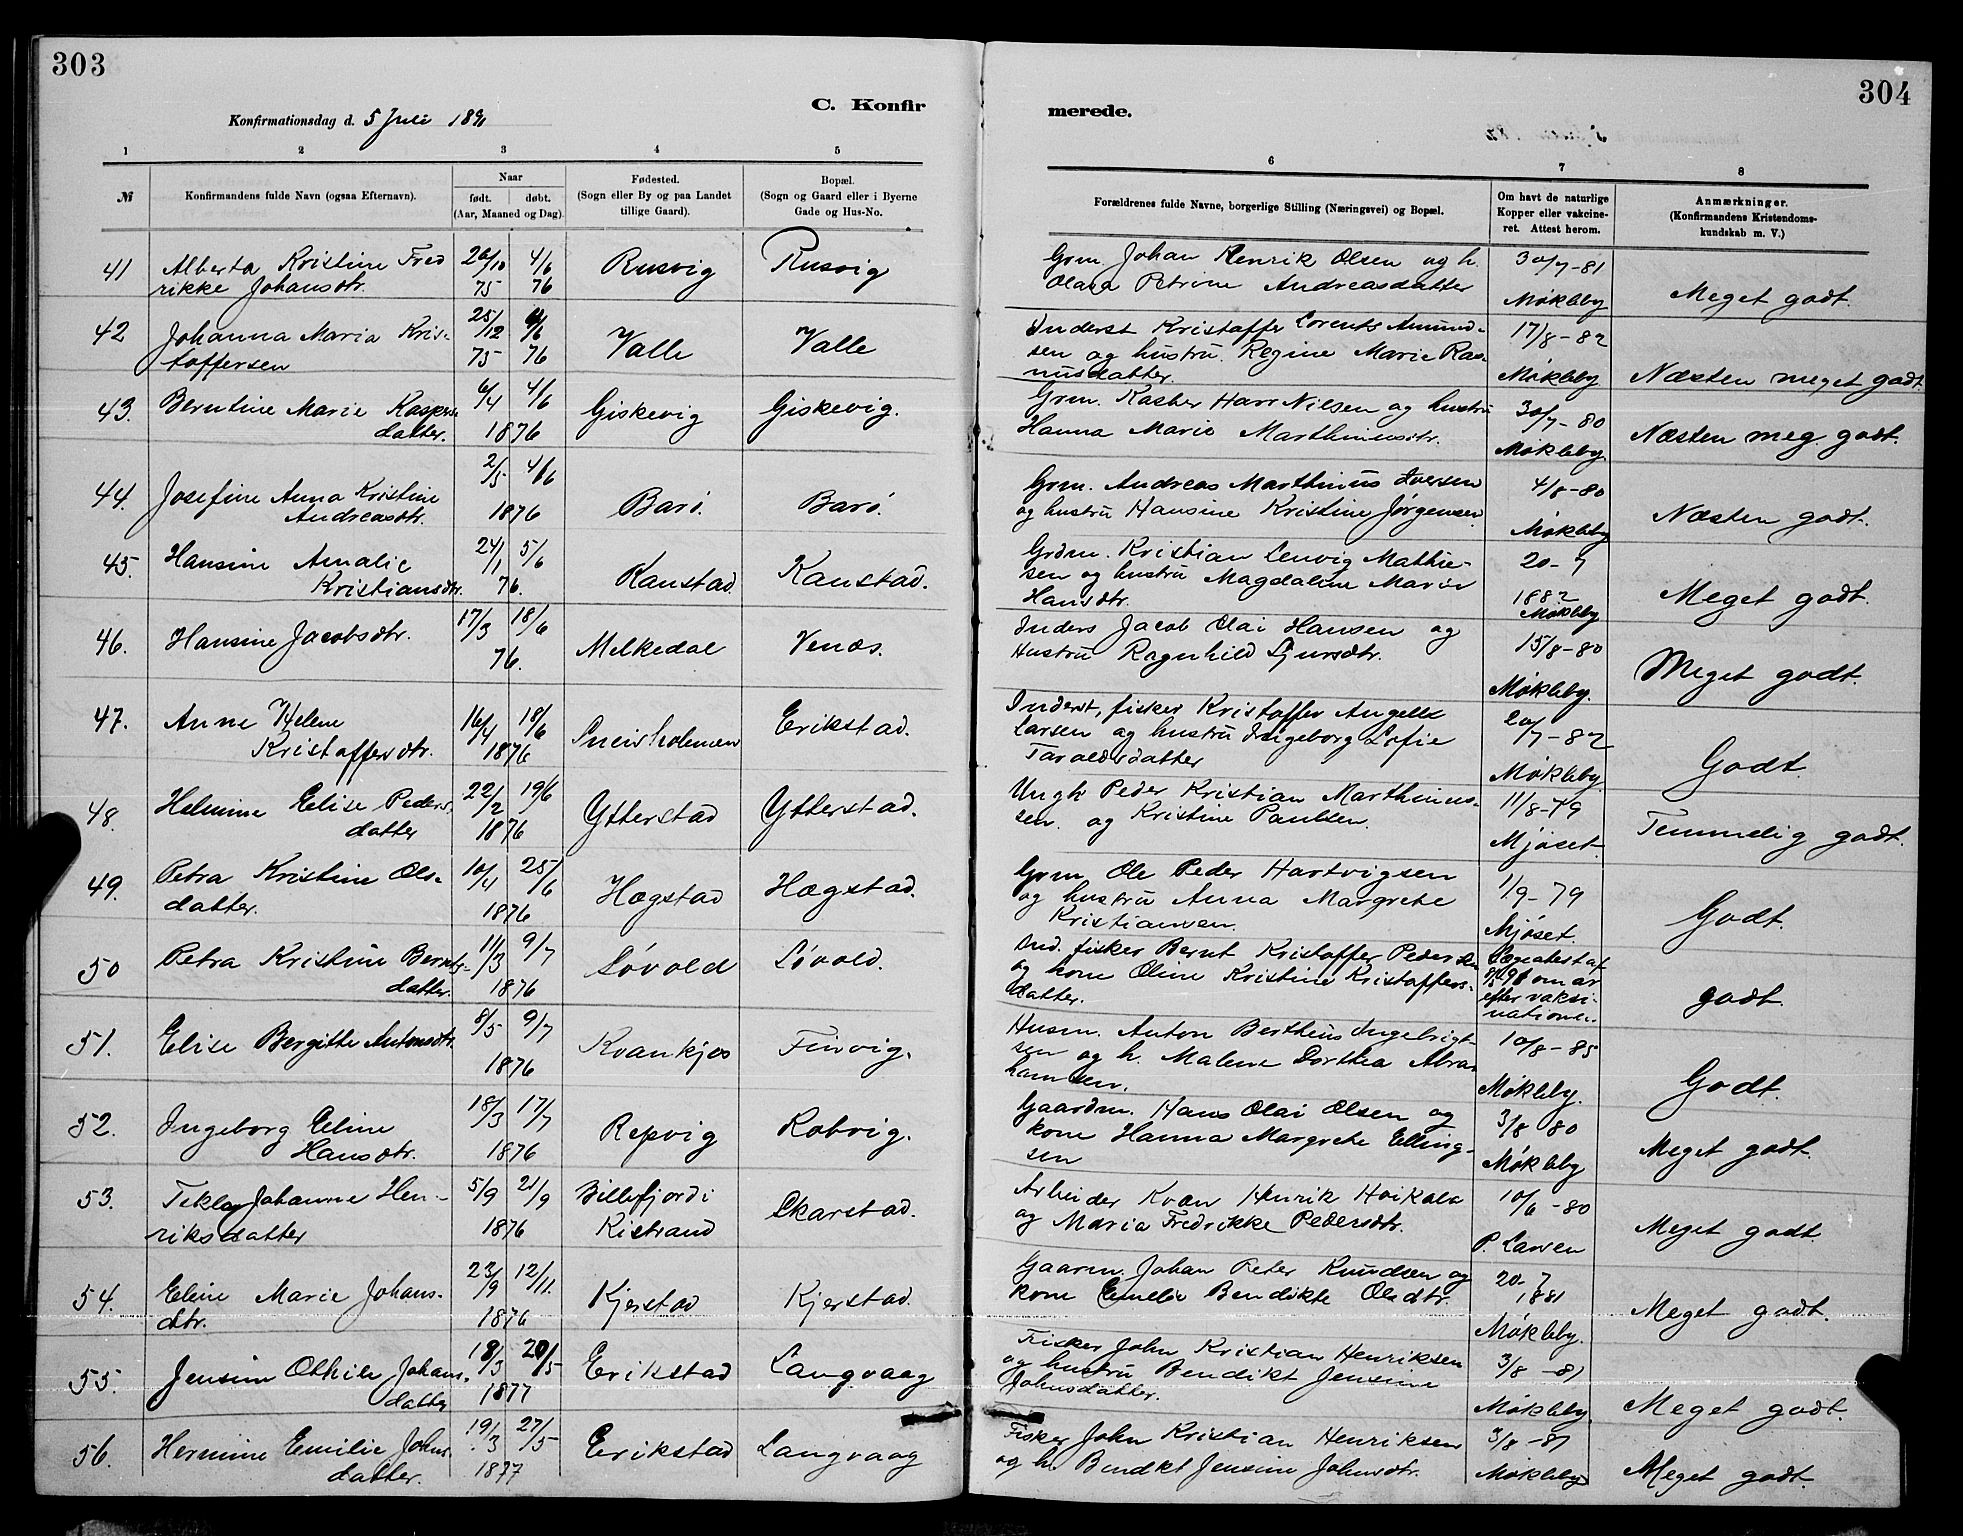 303
C. Konfir
Konfirmationsdag d. 5 Juli 1891
1 2 3 4 5
№
Konfirmandens fulde Navn (ogsaa Efternavn).
Naar
født. døbt.
(Aar, Maaned og Dag).
Fødested.
(Sogn eller By og paa Landet
tillige Gaard).
Bopæl.
(Sogn og Gaard eller i Byerne
Gade og Hus-No.
304
merede.
6 7 8
Forældrenes fulde Navne, borgerlige Stilling (Næringsvei) og Bopæl.
Om havt de naturlige
Kopper eller vakcine-
ret. Attest herom.
Anmærkninger.
(Konfirmandens Kristendoms-
kundskab m. V.)
41 Alberta Kristine Fred
rikke Johansdtr.
26/10 75 4/6 76
Rusvig
Rusvig
Grm. Johan Henrik Olsen og h.
Olava Petrine Andreasdatter
30/7-81
Møkleby
Meget godt.
42 Johanna Maria Kris-
toffersen
25/12 75 4/6 76
Valle
Valle
Inderst Kristoffer Lorents Amund-
sen og hustru Regine Marie Ras-
musdatter.
17/8-82
Møkleby
Næsten meget godt.
43. Berntine Marie Kaspers
datter.
6/4 4/6
1876
Giskevig
Giskevig.
Grm. Kasber Harr Nilsen og hustru
Hanna Marie Marthinusdtr.
30/7-80
Møkleby
Næsten meg. godt.
44. Josefine Anna Kristine
Andreasdtr.
2/5 4/6
1876
Barø.
Barø.
Grm. Andreas Marthinus Iversen
og hustru Hansine Kristine Jørgensen
4/8-80
Møkleby
Næsten godt.
45. Hansine Amalie
Kristiansdtr.
24/1 5/6
76.
Kanstad
Kanstad.
Grdm. Kristian Lenvig Mathie-
sen og hustru Magdaline Marie
Hansdtr.
20-7
1882
Møkleby
Meget godt.
46. Hansine Jacobsdtr.
17/3 18/6
76.
Melkedal
Venæs.
Inders Jacob Olai Hansen og
Hustru Ragnhild Sjursdtr.
15/8-80
Møkleby.
Meget godt.
47. Anne Helene
Kristoffersdtr.
16/4 18/6
1876
Sneisholmen
Erikstad.
Inderst, fisker Kristoffer Angell
Larsen og hustru Ingeborg Sofie
Taraldsdatter
20/7-82
Møkleby.
Godt
48. Helmine Elise Peders
datter
22/2 19/6
1876
Ytterstad
Ytterstad.
Ungk Peder Kristian Marthinus-
sen. og Kristine Paulsen.
11/8-79
Mjøset.
Temmelig godt.
49. Petra Kristine Ols-
datter.
10/4 25/6
1876
Hægstad
Hægstad.
Grm Ole Peder Hartvigsen
og hustru Anna Margrete
Kristiansen.
1/9-79
Mjøset.
Godt.
50 Petra Kristine Bernts-
datter.
11/3 9/7
1876
Løvold
Løvold.
Ind. fisker Bernt Kristoffer Pedersen
og kone Oline Kristine Kristoffers-
datter.
Lægeattest af
8/5 91 om ar
efter vaksi-
nationen.
godt.
51. Elise Bergitte Antonsdtr.
8/5 9/7
1876
Kvankjos
Finvig.
Husm. Anton Bertheus Ingebrigt-
sen og h. Malene Dorthea Abra-
hamsen.
10/8-85
Møkleby.
Godt.
52. Ingeborg Eline
Hansdtr.
18/3 17/7
1876
Repvig
Robvig.
Gaardm. Hans Olai Olsen og
kone Hanna Margrete Elling-
sen
3/8 80
Møkleby
Meget godt.
53. Tekla Johanne Hen-
riksdatter
5/9 21/9
1876
Billefjord i
Kistrand
Skarstad.
Arbeider Kvæn Henrik Hoikala
og Maria Fredrikke Pedersdtr.
10/6-80
P. Larsen
Meget godt.
54. Eline Marie Johans-
dtr.
23/9 12/11.
1876
Kjerstad
Kjerstad.
Gaarm. Johan Peter Knudsen og
kone Emelie Bendikte Olsdtr.
20-7
1881
Møkleby.
Meget godt.
55. Jensine Othilie Johans-
datter
18/3 20/5
1877
Erikstad
Langvaag
Fisker John Kristian Henriksen
og hustru Bendikt Jensine
Johnsdatter.
3/8-81
Møkleby.
Meget godt.
56. Hermine Emilie Johns-
datter.
19/3 27/5
1877
Erikstad
Langvaag
Fisker John Kristian Henriksen
og h. Bendkt Jensine Johnsdtr.
3/8-81
Møkleby
Meget godt.